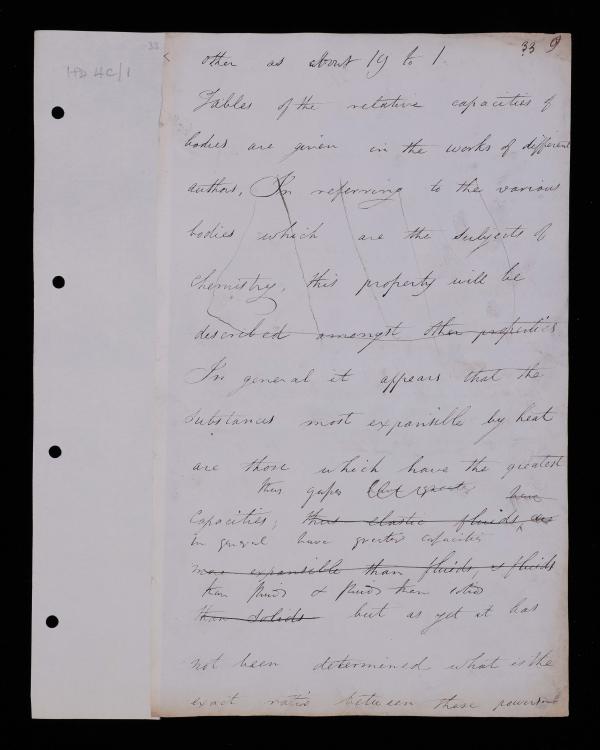 33
HD 4C/1
33 9
other as about 19 to 1.
Tables of the relative capacities of
bodies are given in the works of different
authors. In referring to the various
bodies which are the subjects of
Chemistry, this property will be
described amongst other properties
In general it appears that the
substances most expansible by heat
are those which have the greatest
thus gases have
Capacities; thus elastic fluids, are
in general have greater capacities
more expansible than fluids, & fluids
than fluids & fluids than solids
than solids but as yet it has
not been determined what is the
exact ratio between these powers